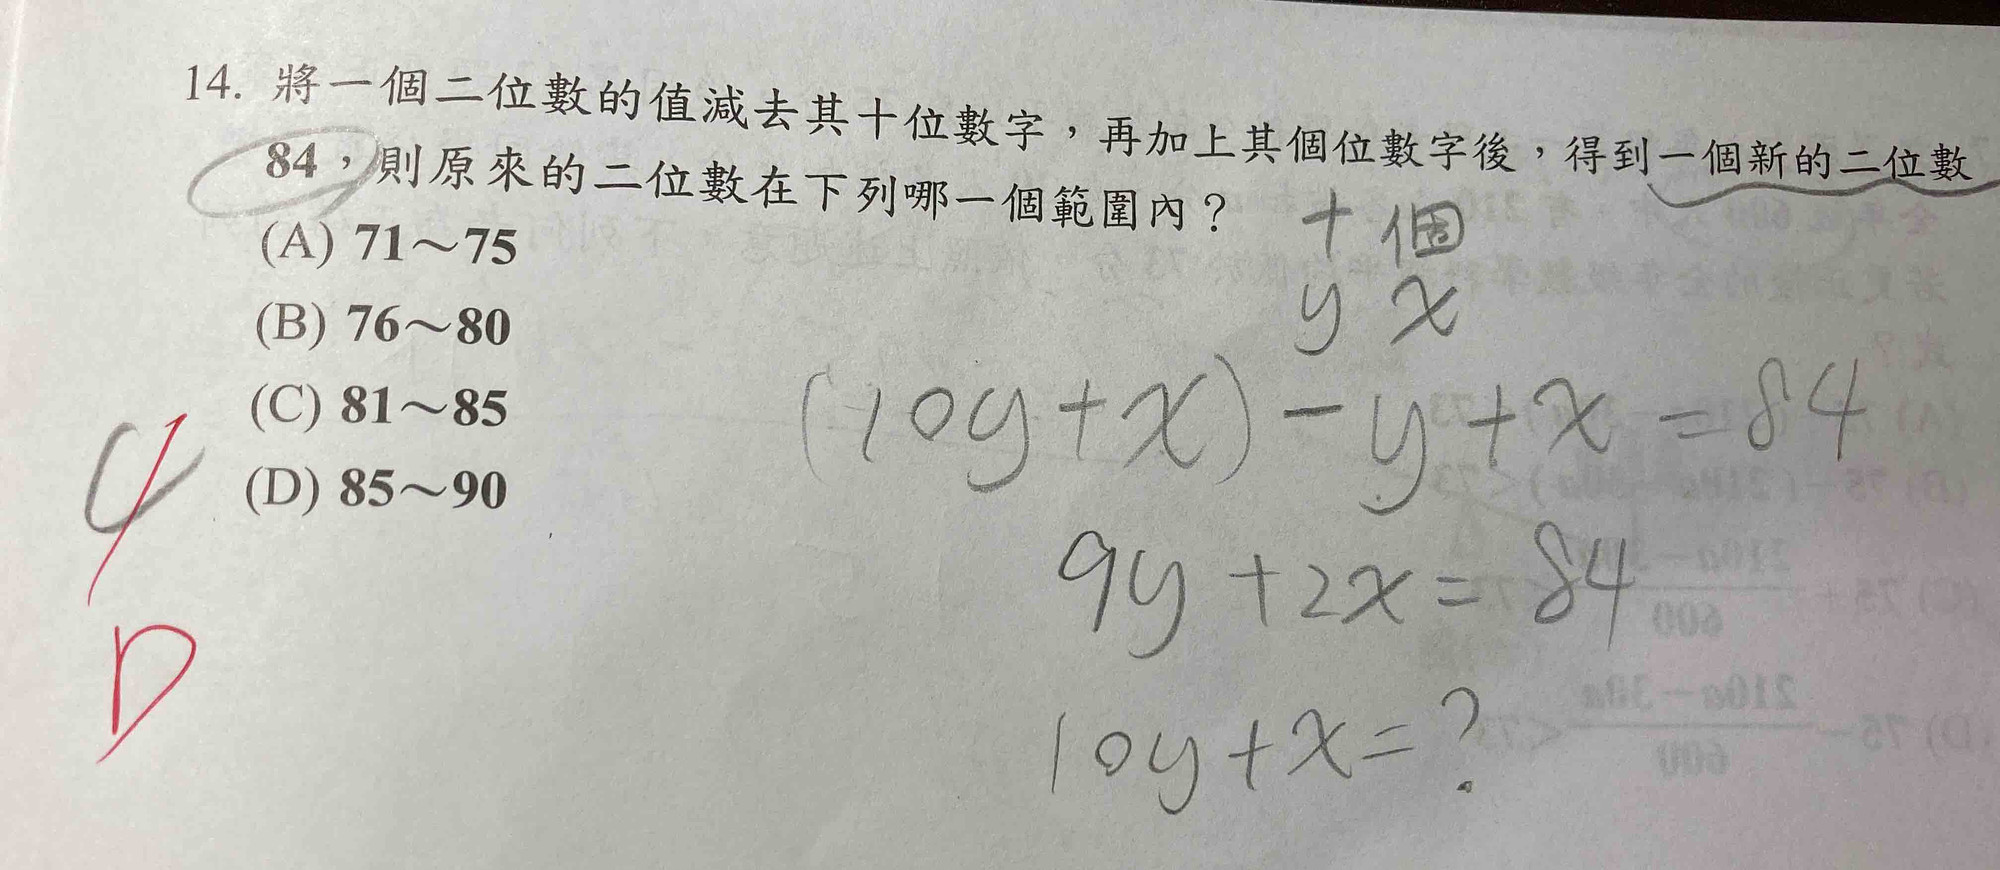 14. 將一個二位數的值減去其十位數字，再加上其個位數字後，得到一個新的二位數
84，則原來的二位數在下列哪一個範圍內？
(A) 71～75
(B) 76～80
(C) 81～85
(D) 85～90
十 個
y x
(10y+x)-y+x=84
9y+2x=84
10y+x=?
D